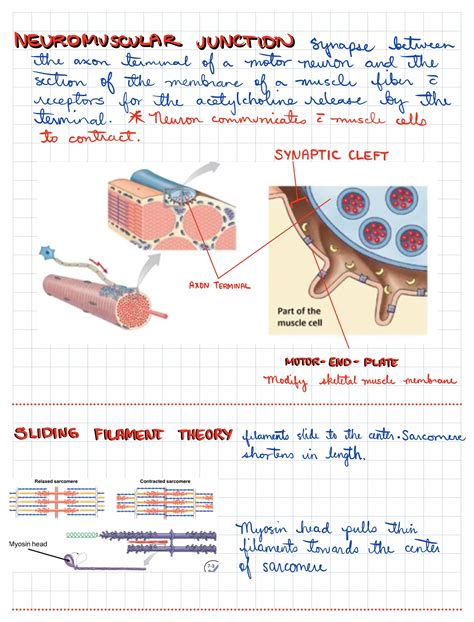 NEUROMUSCULAR JUNCTION Synapse between
the axon terminal of a motor neuron and the
section of the membrane of a muscle fiber c̄
receptors for the acetylcholine release by the
terminal. * Neuron communicates c̄ muscle cells
to contract.
SYNAPTIC CLEFT
AXON TERMINAL
Part of the
muscle cell
MOTOR-END-PLATE
Modify skeletal muscle membrane
SLIDING FILAMENT THEORY filaments slide to the center. Sarcomere
shortens in length.
Relaxed sarcomere
Contracted sarcomere
Myosin head
Myosin head pulls thin
filaments towards the center
of sarcomere